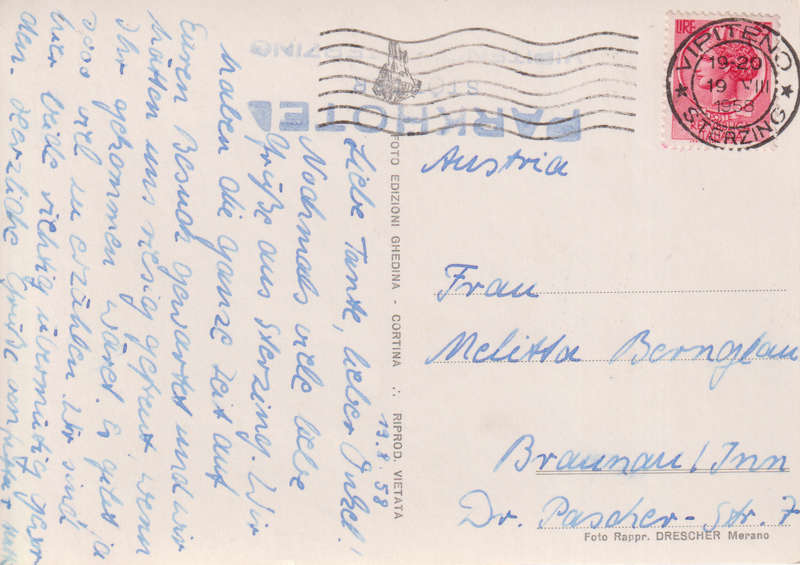 Liebe Tante, lieber Onkel!
Nochmals viele liebe
Grüße aus Sterzing. Wir
haben die ganze Zeit auf
Euren Besuch gewartet und wir
hätten uns riesig gefreut, wenn
Ihr gekommen wäret. Es gibt ja
sooo viel zu erzählen. Wir sind
hier beide richtig übermütig
den. Herzliche Grüße von
19.8.58
FOTO EDIZIONI GHEDINA - CORTINA ∴ RIPROD. VIETATA
PARKHOTEL
STERZING
VIPITENO
LIRE
VIPITENO
19-20
19 VIII
1958
STERZING
Austria
Frau
Melitta Bernglau
Braunau/Inn
Dr. Pascher-Str. 7
Foto Rappr. DRESCHER Merano